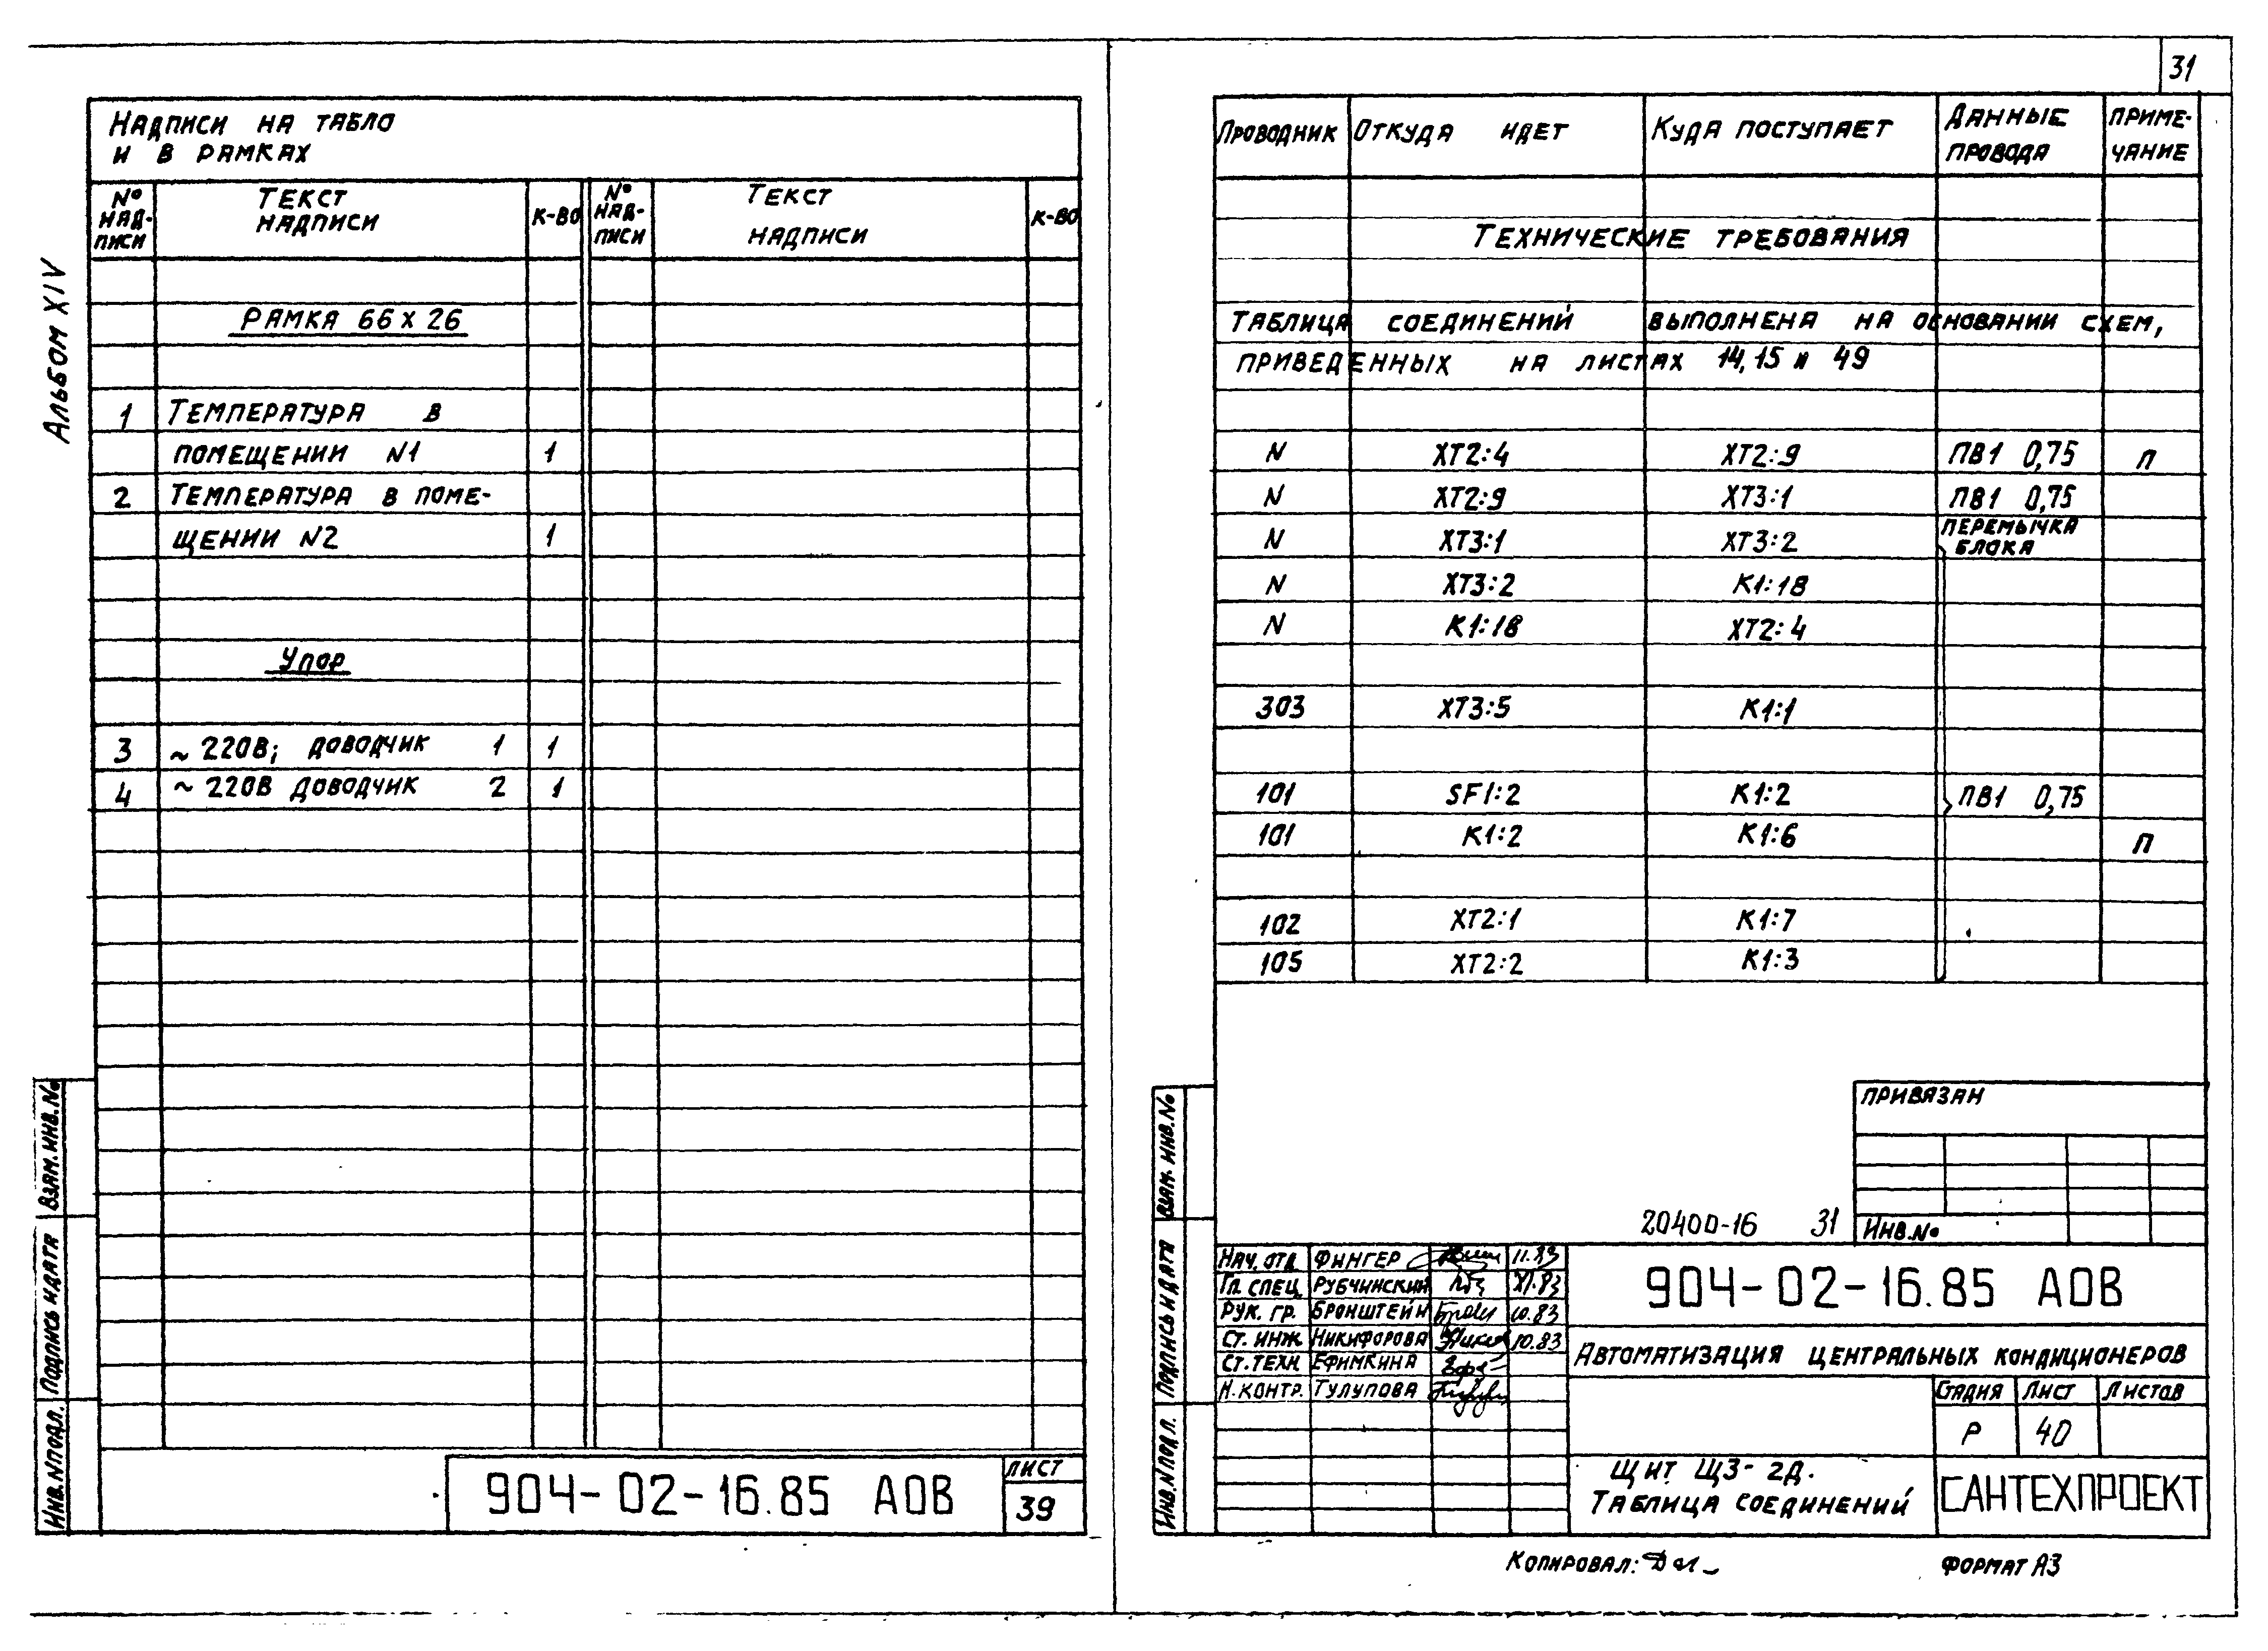 31
Альбом XIV
Надписи на табло
и в рамках
№ надписи Текст надписи к-во № надписи Текст надписи к-во
Рамка 66 x 26
1 Температура в
помещении N1 1
2 Температура в поме-
щении N2 1
Упор
3 ~ 220В; доводчик 1 1
4 ~ 220В доводчик 2 1
Взам. инв. №
Подпись и дата
Инв. N подл.
904-02-16.85 АОВ
лист
39
Проводник Откуда идет Куда поступает Данные провода Приме-чание
Технические требования
Таблица соединений выполнена на основании схем,
приведенных на листах 14, 15 и 49
N XT2:4 XT2:9 ПВ1 0,75 п
N XT2:9 XT3:1 ПВ1 0,75
N XT3:1 XT3:2 перемычка блока
N XT3:2 K1:18
N K1:18 XT2:4
303 XT3:5 K1:1
101 SF1:2 K1:2 ПВ1 0,75
101 K1:2 K1:6 п
102 XT2:1 K1:7
105 XT2:2 K1:3
Взам. инв. №
Подпись и дата
Инв. N подл.
Привязан
Инв. №
20400-16 31
Нач. отд. Фингер 11.83
Гл. спец. Рубчинский XI.83
Рук. гр. Бронштейн 10.83
Ст. инж. Никифорова 10.83
Ст. техн. Ефимкина
Н. контр. Тулупова
904-02-16.85 АОВ
Автоматизация центральных кондиционеров
Стадия Лист Листов
Р 40
Щит ЩЗ-2Д.
Таблица соединений
САНТЕХПРОЕКТ
Копировал:
Формат А3